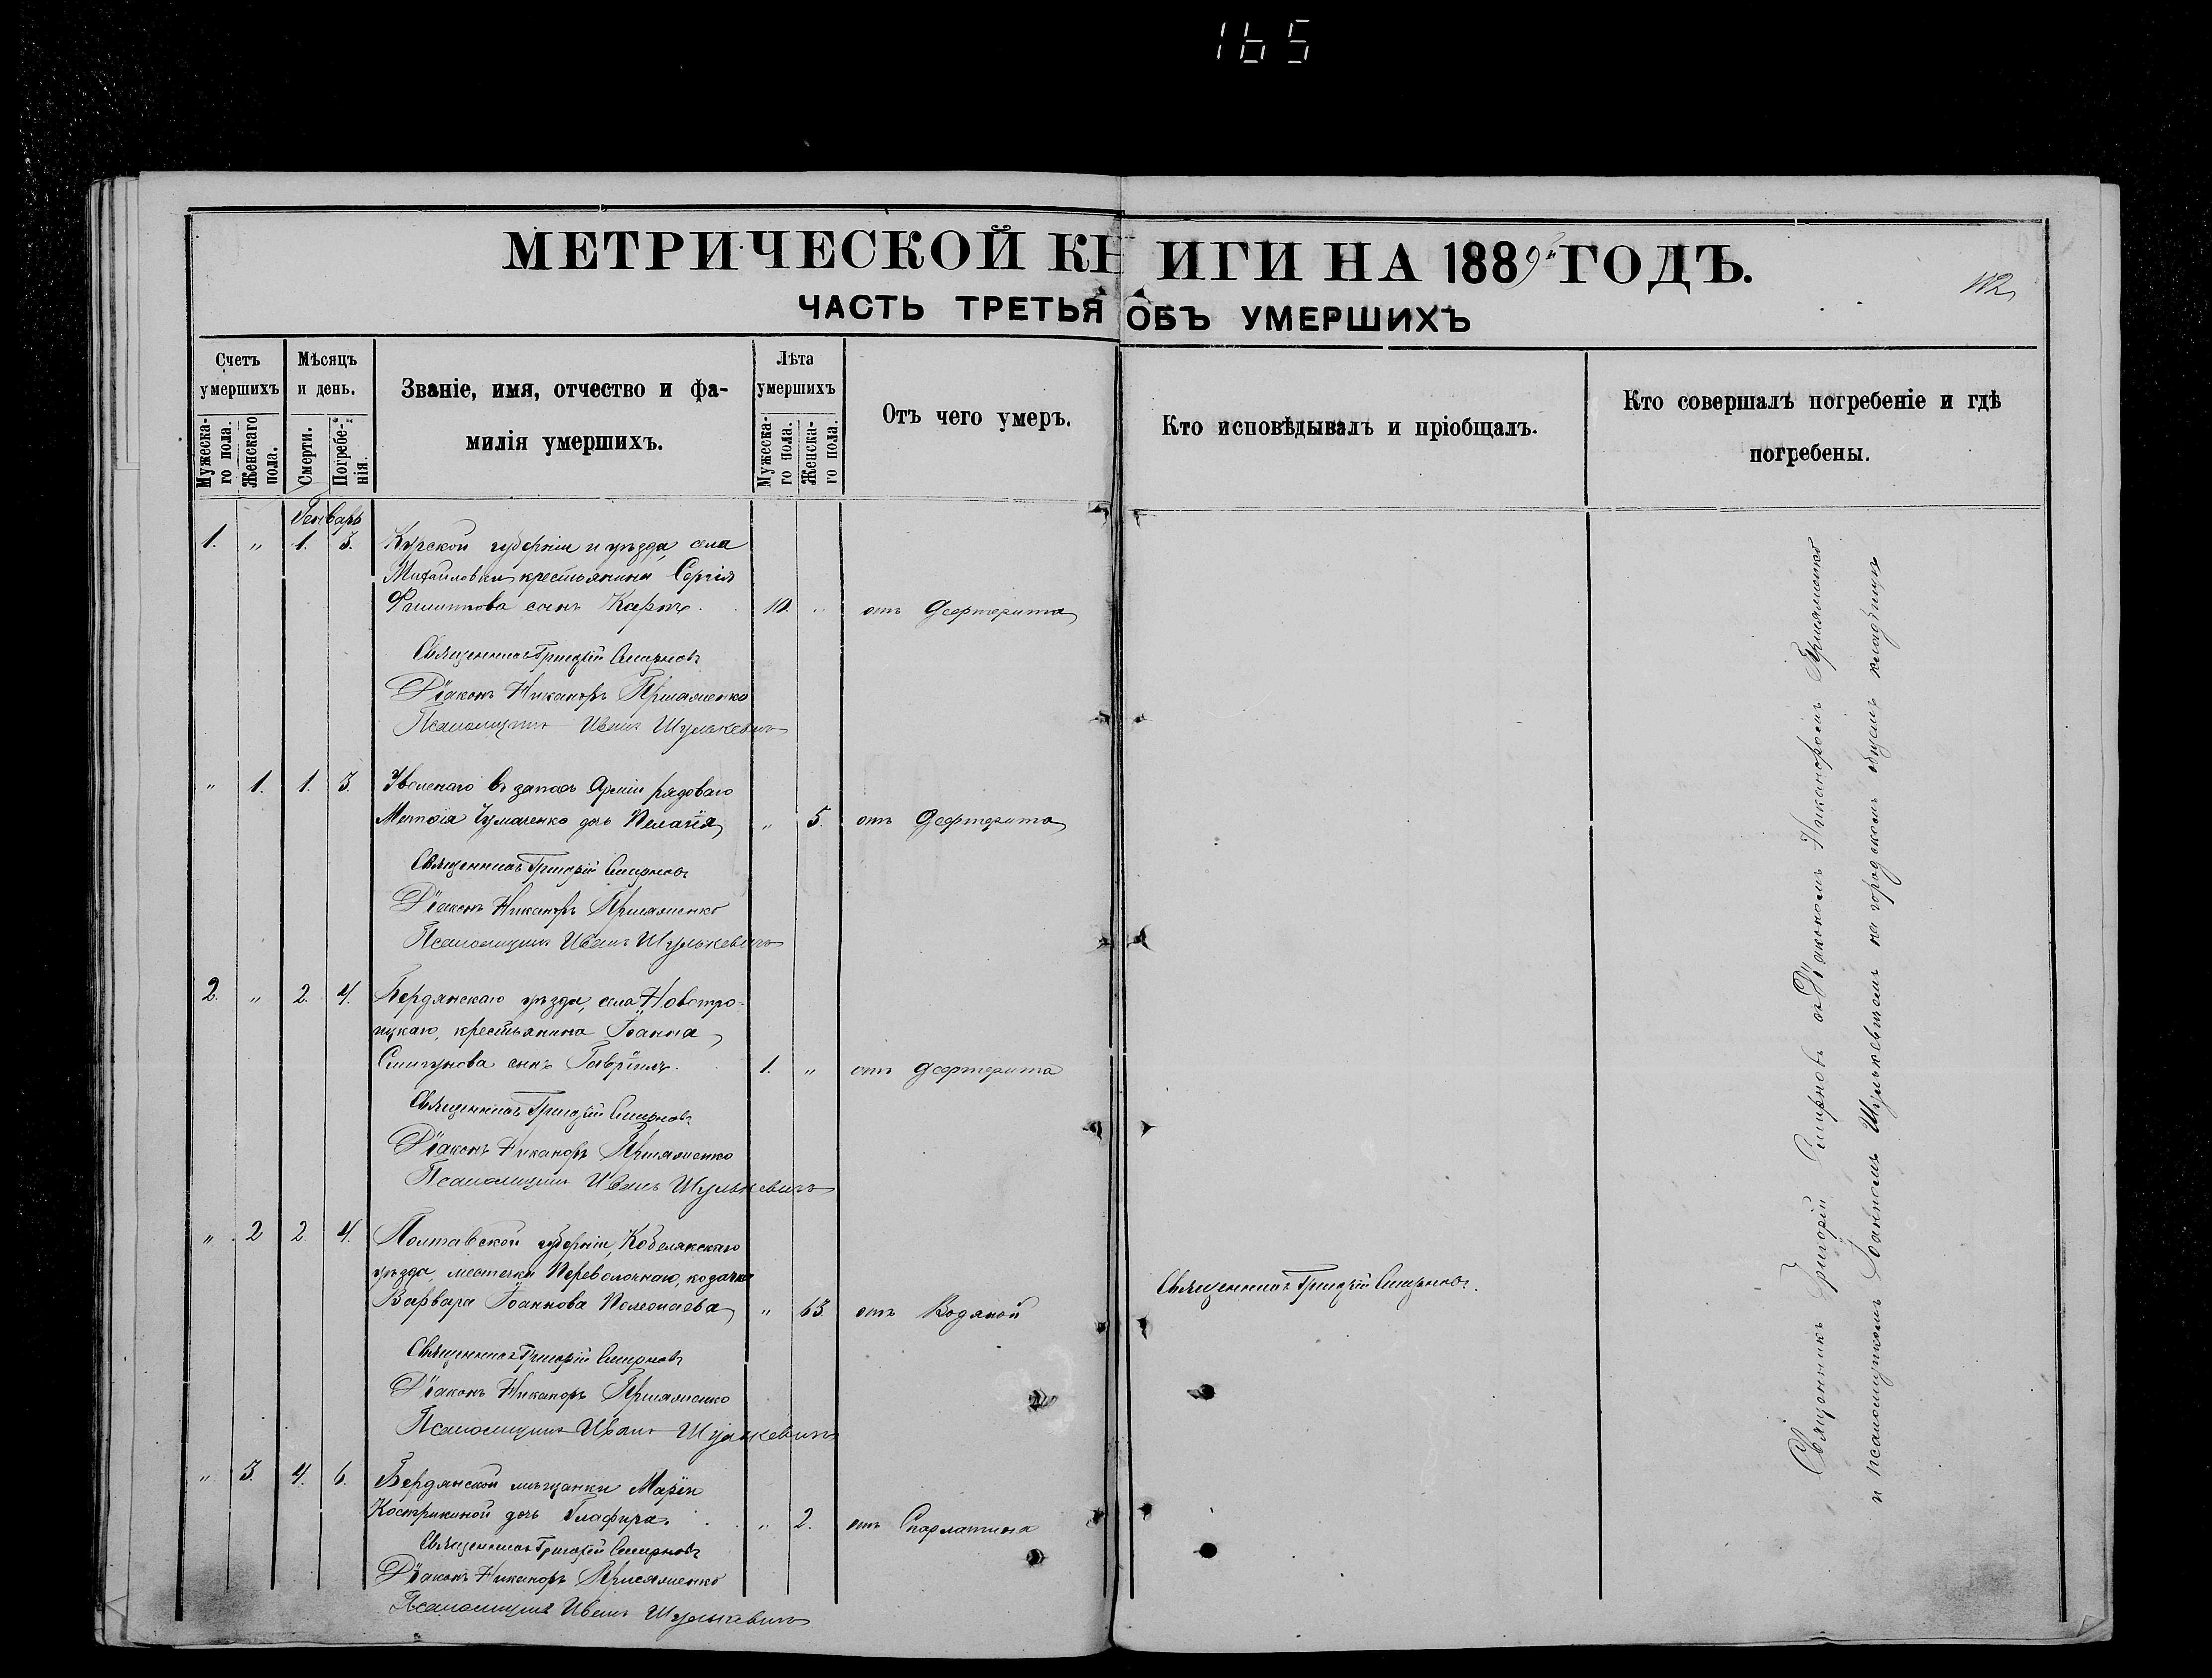 165
МЕТРИЧЕСКОЙ КНИГИ НА 1889й ГОДЪ.
112
ЧАСТЬ ТРЕТЬЯ ОБЪ УМЕРШИХЪ
Счетъ умершихъ
Мужеска-го пола.
Женскаго пола.
Мѣсяцъ и день.
Смерти.
Погребе-нія.
Званіе, имя, отчество и фа-
милія умершихъ.
Лѣта умершихъ
Мужеска-го пола.
Женска-го пола.
Отъ чего умеръ.
Кто исповѣдывалъ и пріобщалъ.
Кто совершалъ погребеніе и гдѣ
погребены.
Генварь
1. „ 1. 3. Курской губерніи и уѣзда, села
Михайловки крестьянина Сергія
Филиппова сынъ Карпъ. 10. „ отъ Дифтерита
Священникъ Григорій Смирновъ
Діаконъ Никаноръ
Псаломщикъ Иванъ Шулькевичъ
„ 1. 1. 3. Уволенаго въ запасъ Арміи рядоваго
Чумаченко дочь Пелагія „ 5. отъ Дифтерита
Священникъ Григорій Смирновъ
Діаконъ Никаноръ
Псаломщикъ Иванъ Шулькевичъ
2. „ 2. 4. Бердянскаго уѣзда, села Новотро-
ицкаго, крестьянина Іоанна
сынъ Гавріилъ. 1. „ отъ дифтерита
Священникъ Григорій Смирновъ
Діаконъ Никаноръ
Псаломщикъ Иванъ Шулькевичъ
„ 2 2. 4. Полтавской губерніи, Кобелякскаго
уѣзда, местечка Переволочнаго, козачка
Варвара Іоаннова „ 63. отъ Водяной
Священникъ Григорій Смирновъ.
Священникъ Григорій Смирновъ
Діаконъ Никаноръ
Псаломщикъ Иванъ Шулькевичъ
„ 3. 4. 6. Бердянской мѣщанки Маріи
Костркиной дочь Глафира. „ 2. отъ Скарлатина
Священникъ Григорій Смирновъ
Діаконъ Никаноръ
Псаломщикъ Иванъ Шулькевичъ
Священникъ Григорій Смирновъ съ Діакономъ Никаноромъ
и псаломщикомъ Іоанномъ Шулькевичемъ на городскомъ общемъ кладбищѣ